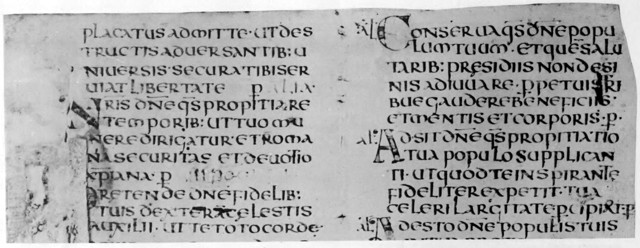 PLACATUS ADMITTE · UT DES
TRUCTIS ADVERSANTIB: U
NIVERSIS · SECURA TIBI SER
VIAT LIBERTATE P ALIA
NRIS DNE QS PROPITIARE
TEMPORIB: UT TUO MU
NERE DIRIGATUR · ET ROMA
NA SECURITAS ET DEVOTIO
XPIANA · P
PRETENDE DNE FIDELIB:
TUIS DEXTERA CELESTIS
AUXILII · UT TE TOTO CORDE ·
AL CONSERVA QS DNE POPU
LUM TUUM · ET QUES SALU
TARIB: PRESIDIIS NON DESI
NIS ADIUVARE · PPETUIS TRI
BUE GAUDERE BENEFICIIS ·
ET MENTIS ET CORPORIS · P ·
AL ADSIT DNE QS PROPITIATIO
TUA POPULO SUPPLICAN
TI · UT QUOD TE INSPIRANTE
FIDELITER EXPETIT · TUA
CELERI LARGITATE PCIPIAT · P
AL ADESTO DNE POPULIS TUIS